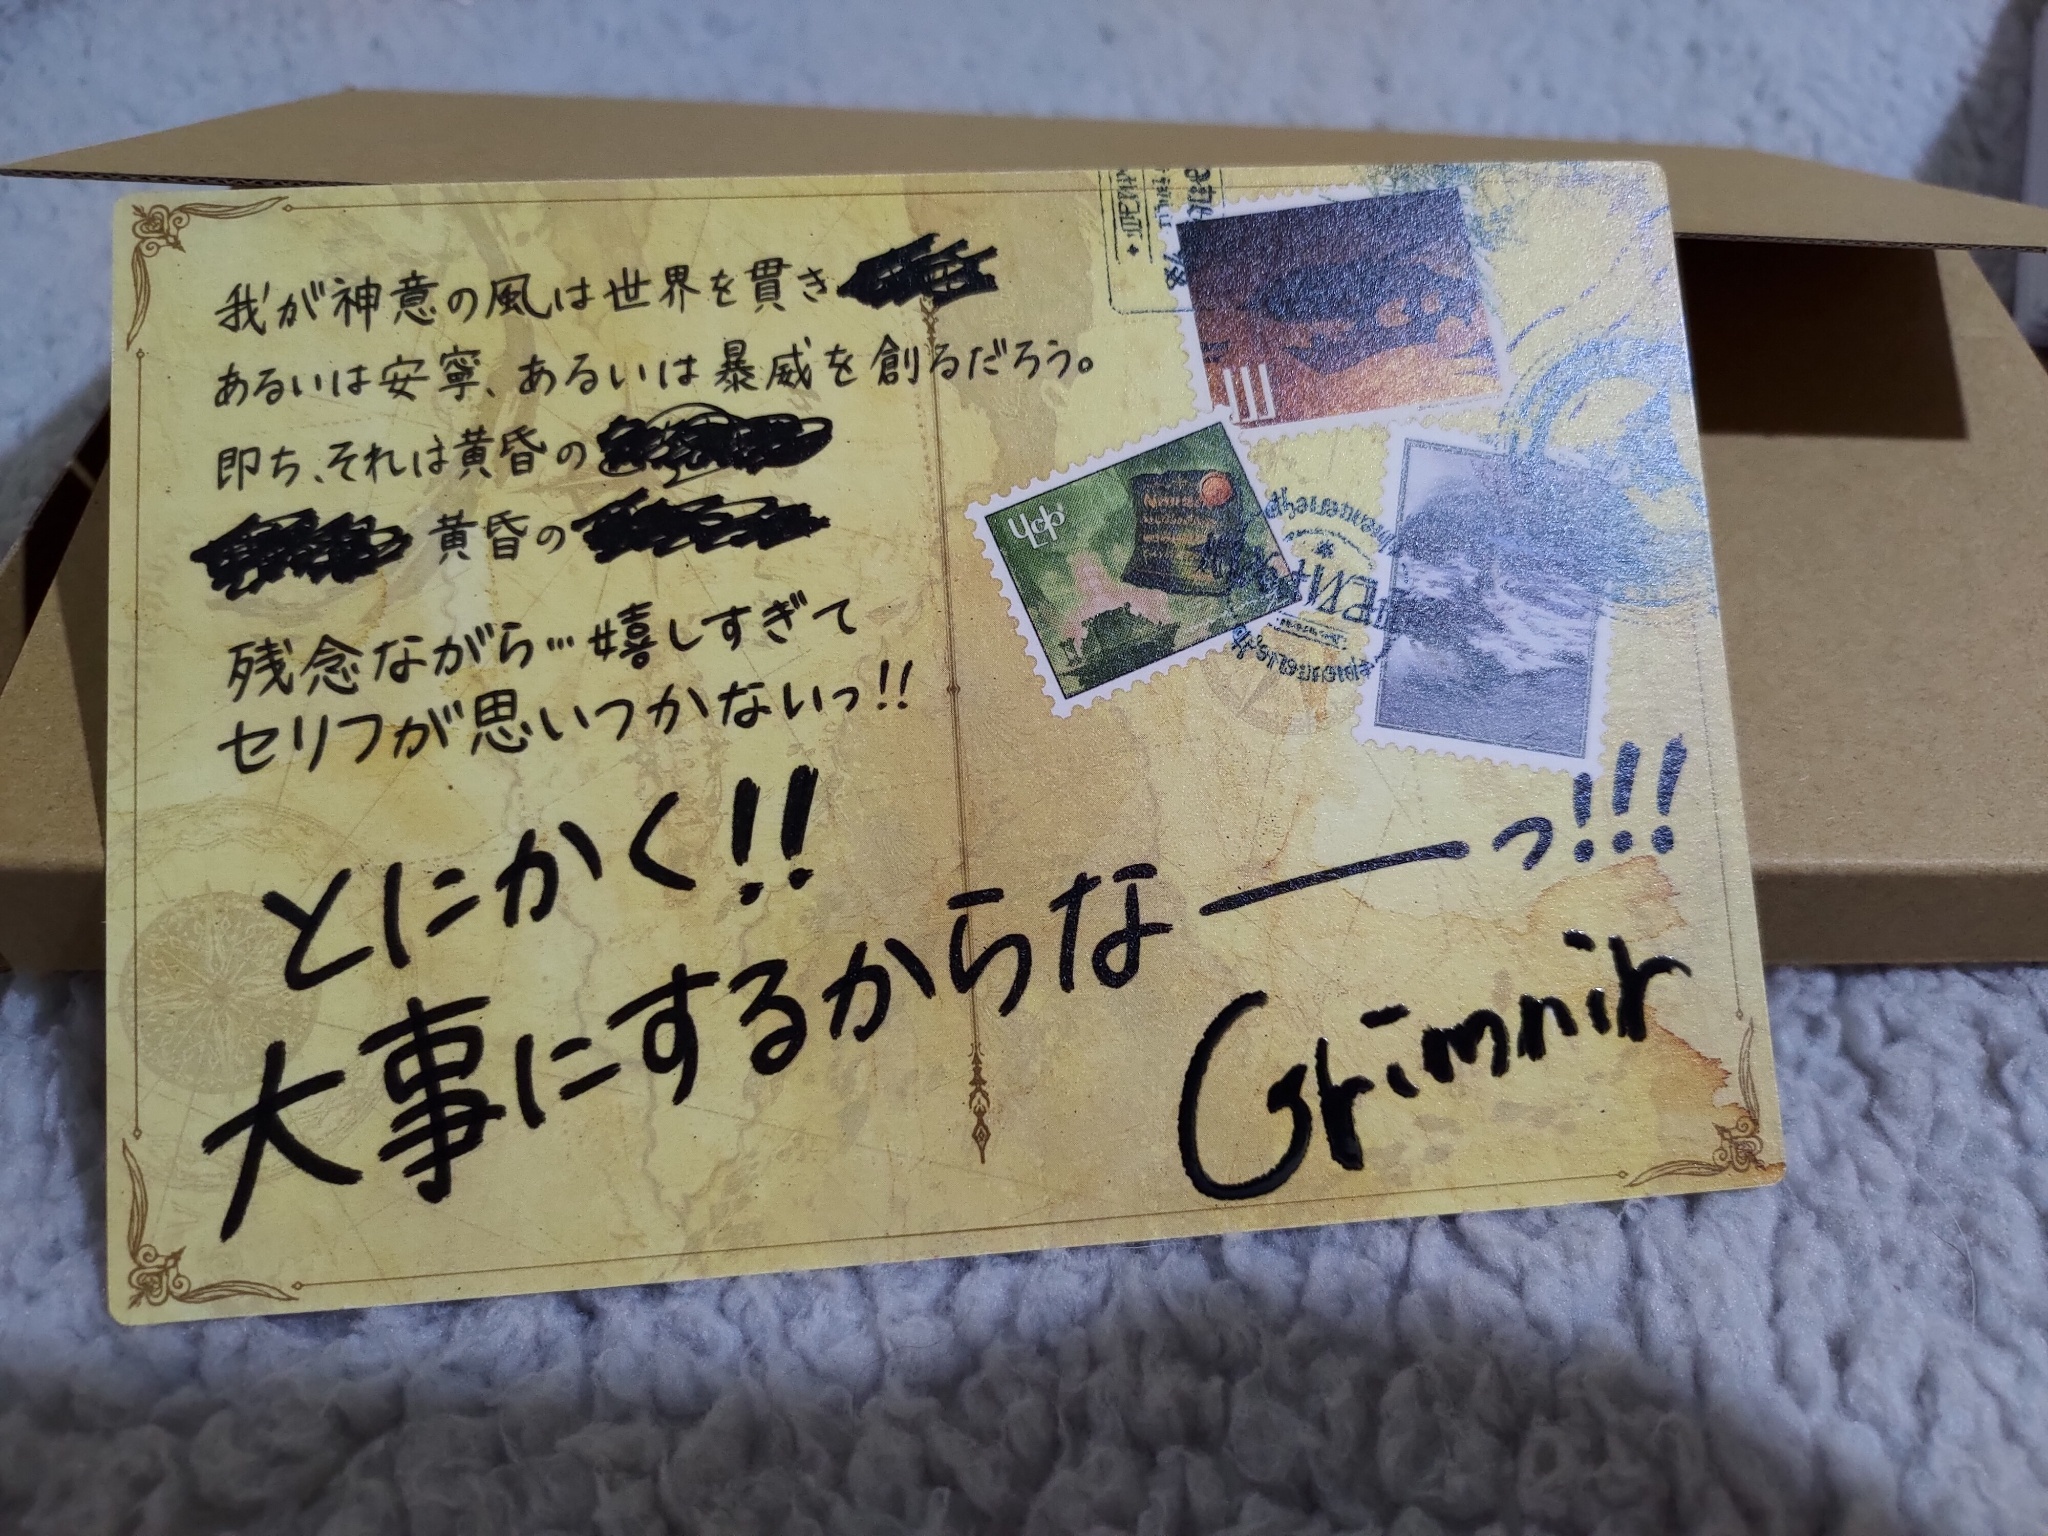 我が神意の風は世界を貫き
あるいは安寧、あるいは暴威を創るだろう。
即ち、それは黄昏の
黄昏の
残念ながら…嬉しすぎて
セリフが思いつかないっ!!
とにかく!!
大事にするからなーっ!!!
Grimnir